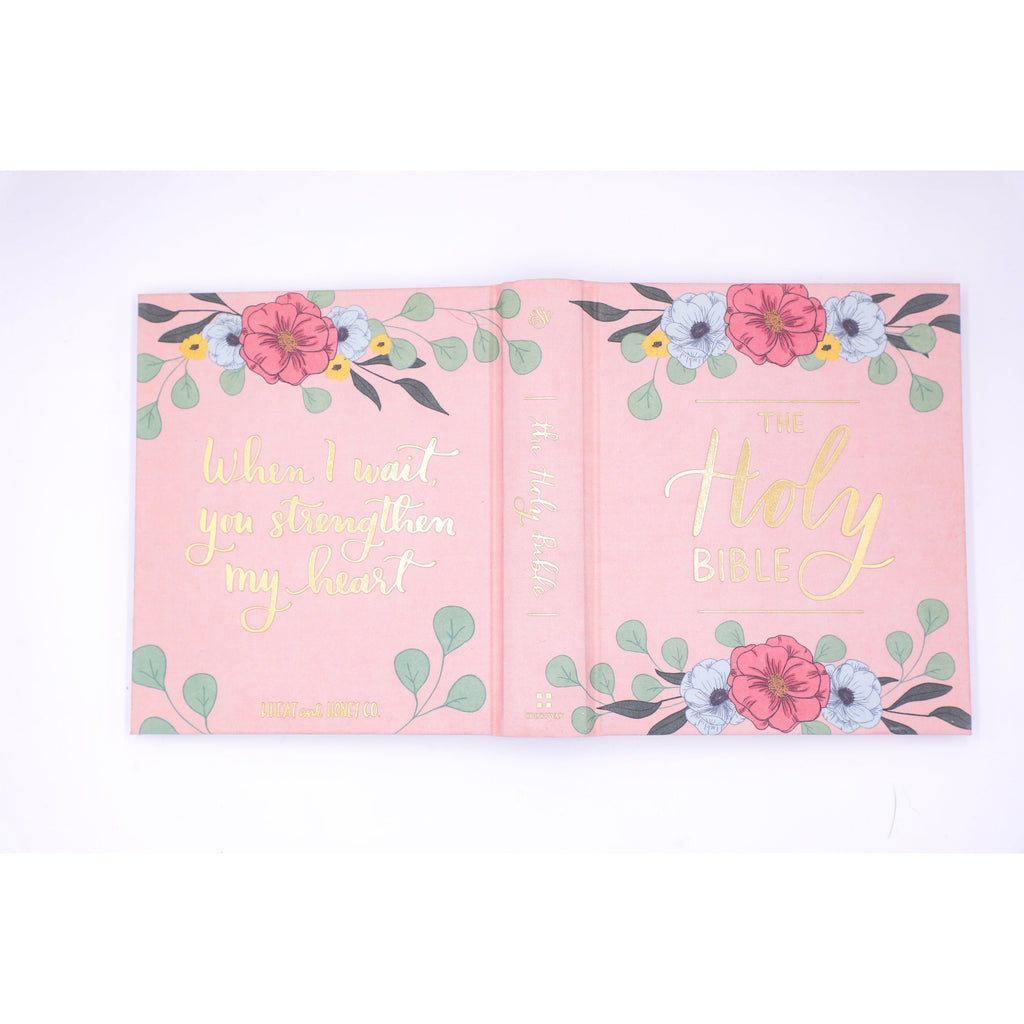 When I wait,
you strengthen
my heart
WHEAT and HONEY CO.
the Holy Bible
CROSSWAY
THE
Holy
BIBLE